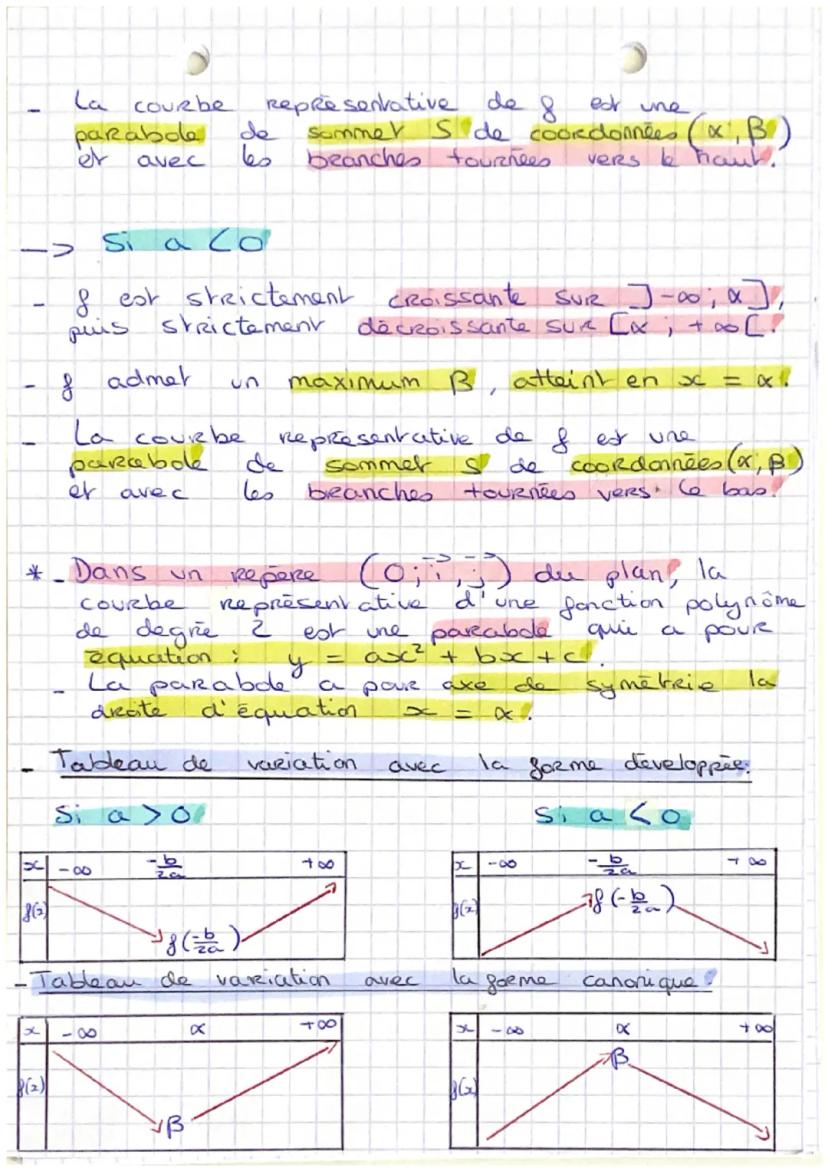 - La courbe représentative de f est une
parabole de sommet S de coordonnées (α ; β)
et avec les branches tournées vers le haut.
--> Si a < 0
- f est strictement croissante sur ]-∞ ; α],
puis strictement décroissante sur [α ; +∞[.
- f admet un maximum β, atteint en x = α.
- La courbe représentative de f est une
parabole de sommet S de coordonnées (α ; β)
et avec les branches tournées vers le bas.
* - Dans un repère (O ; i⃗ , j⃗) du plan, la
courbe représentative d'une fonction polynôme
de degré 2 est une parabole qui a pour
équation : y = ax² + bx + c.
- La parabole a pour axe de symétrie la
droite d'équation x = α.
- Tableau de variation avec la forme développée.
Si a > 0 Si a < 0
x -∞ -b/2a +∞ x -∞ -b/2a +∞
f(x) f(-b/2a) f(x) f(-b/2a)
- Tableau de variation avec la forme canonique.
x -∞ α +∞ x -∞ α +∞
f(x) β f(x) β